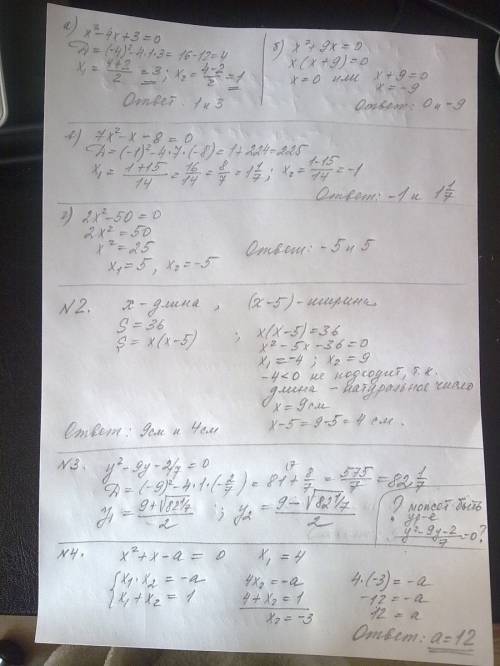 а) x²-4x+3=0
D=(-4)²-4·1·3=16-12=4
x₁=(4+2)/2=3; x₂=(4-2)/2=1
Ответ: 1 и 3
б) x²+9x=0
x(x+9)=0
x=0 или x+9=0
x=-9
Ответ: 0 и -9
в) 7x²-x-8=0
D=(-1)²-4·7·(-8)=1+224=225
x₁=(1+15)/14=16/14=8/7=1 1/7; x₂=(1-15)/14=-1
Ответ: -1 и 1 1/7
г) 2x²-50=0
2x²=50
x²=25
x₁=5, x₂=-5
Ответ: -5 и 5
№2. x-длина, (x-5)-ширина
S=36
S=x(x-5)
; x(x-5)=36
x²-5x-36=0
x₁=-4; x₂=9
-4<0 не подходит, т.к.
длина - натуральное число
x=9см
x-5=9-5=4 см.
Ответ: 9см и 4см
№3. y²-9y-2/7=0
D=(-9)²-4·1·(-2/7)=81+8/7=575/7=82 1/7
y₁=(9+√82 1/7)/2; y₂=(9-√82 1/7)/2
? может быть
ур-е
(y²-9y-2)/7=0?
№4. x²+x-a=0 x₁=4
{x₁·x₂=-a 4x₂=-a 4·(-3)=-a
{x₁+x₂=1 4+x₂=1 -12=-a
x₂=-3 12=a
Ответ: a=12